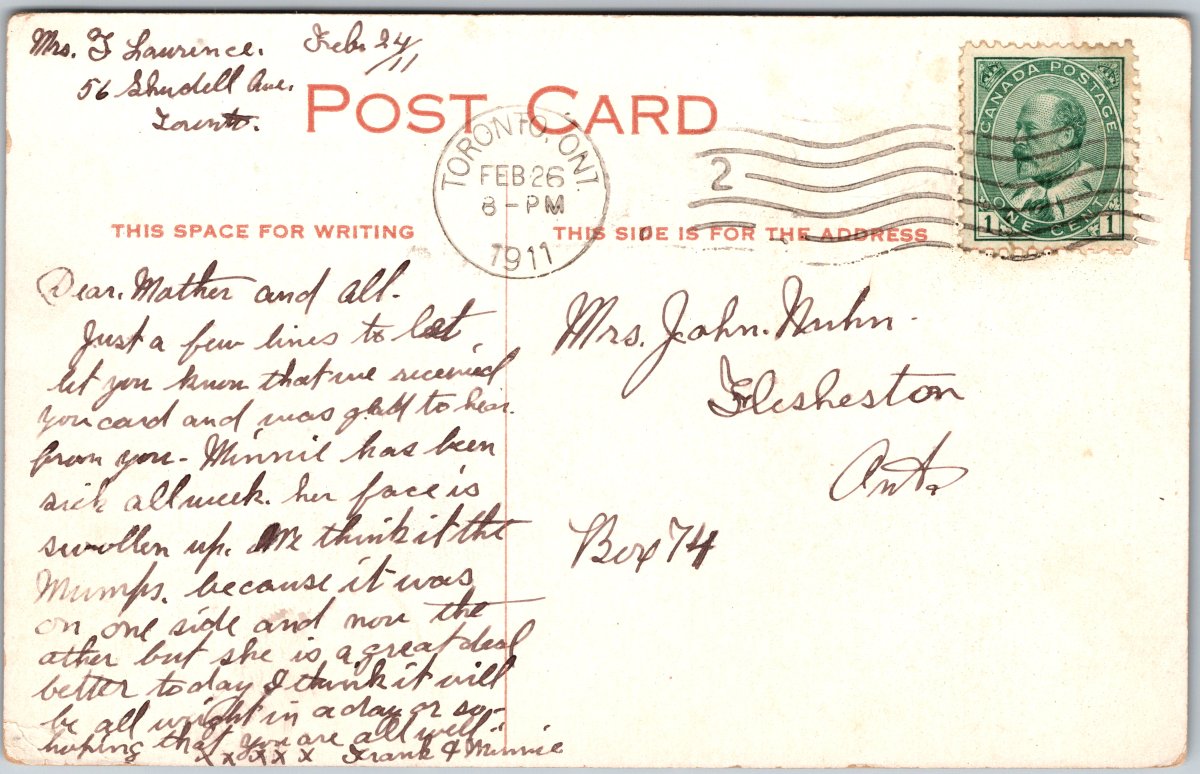 Mrs. F Laurence. Feb 24/11
56 Shudell Ave.
Toronto.
POST CARD
TORONTO, ONT.
FEB 26
8 - PM
1911
2
CANADA POSTAGE
1 ONE CENT 1
THIS SPACE FOR WRITING
THIS SIDE IS FOR THE ADDRESS
Dear. Mother and all.
Just a few lines to let
let you know that we received
you card and was glad to hear
from you - Minnie has been
sick all week. her face is
swollen up. We think it the
Mumps. because it was
on one side and now the
other but she is a great deal
better today I think it will
be all wright in a day or so -
hoping that you are all well -
x x x x x Frank & Minnie
Mrs. John. Nuhn.
Flesheston
Ont.
Box 74